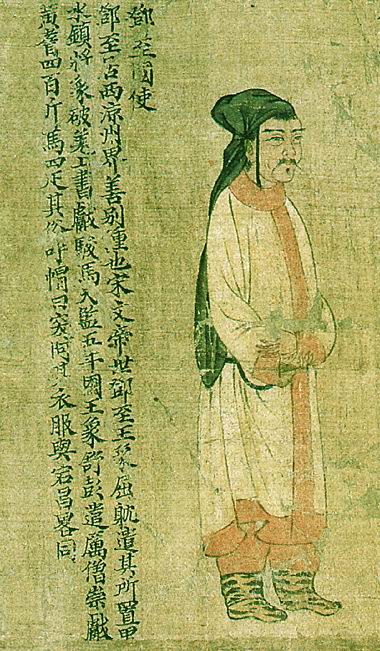 鄧至國使
鄧至居西涼州界羌別種也宋文帝世鄧至王象屈耽遣其所置里
水鎮將象破羌上書獻駿馬天監五年國王象舒彭遣厲僧崇獻
黃耆四百斤馬四疋其俗呼帽曰突何其衣服與宕昌畧同